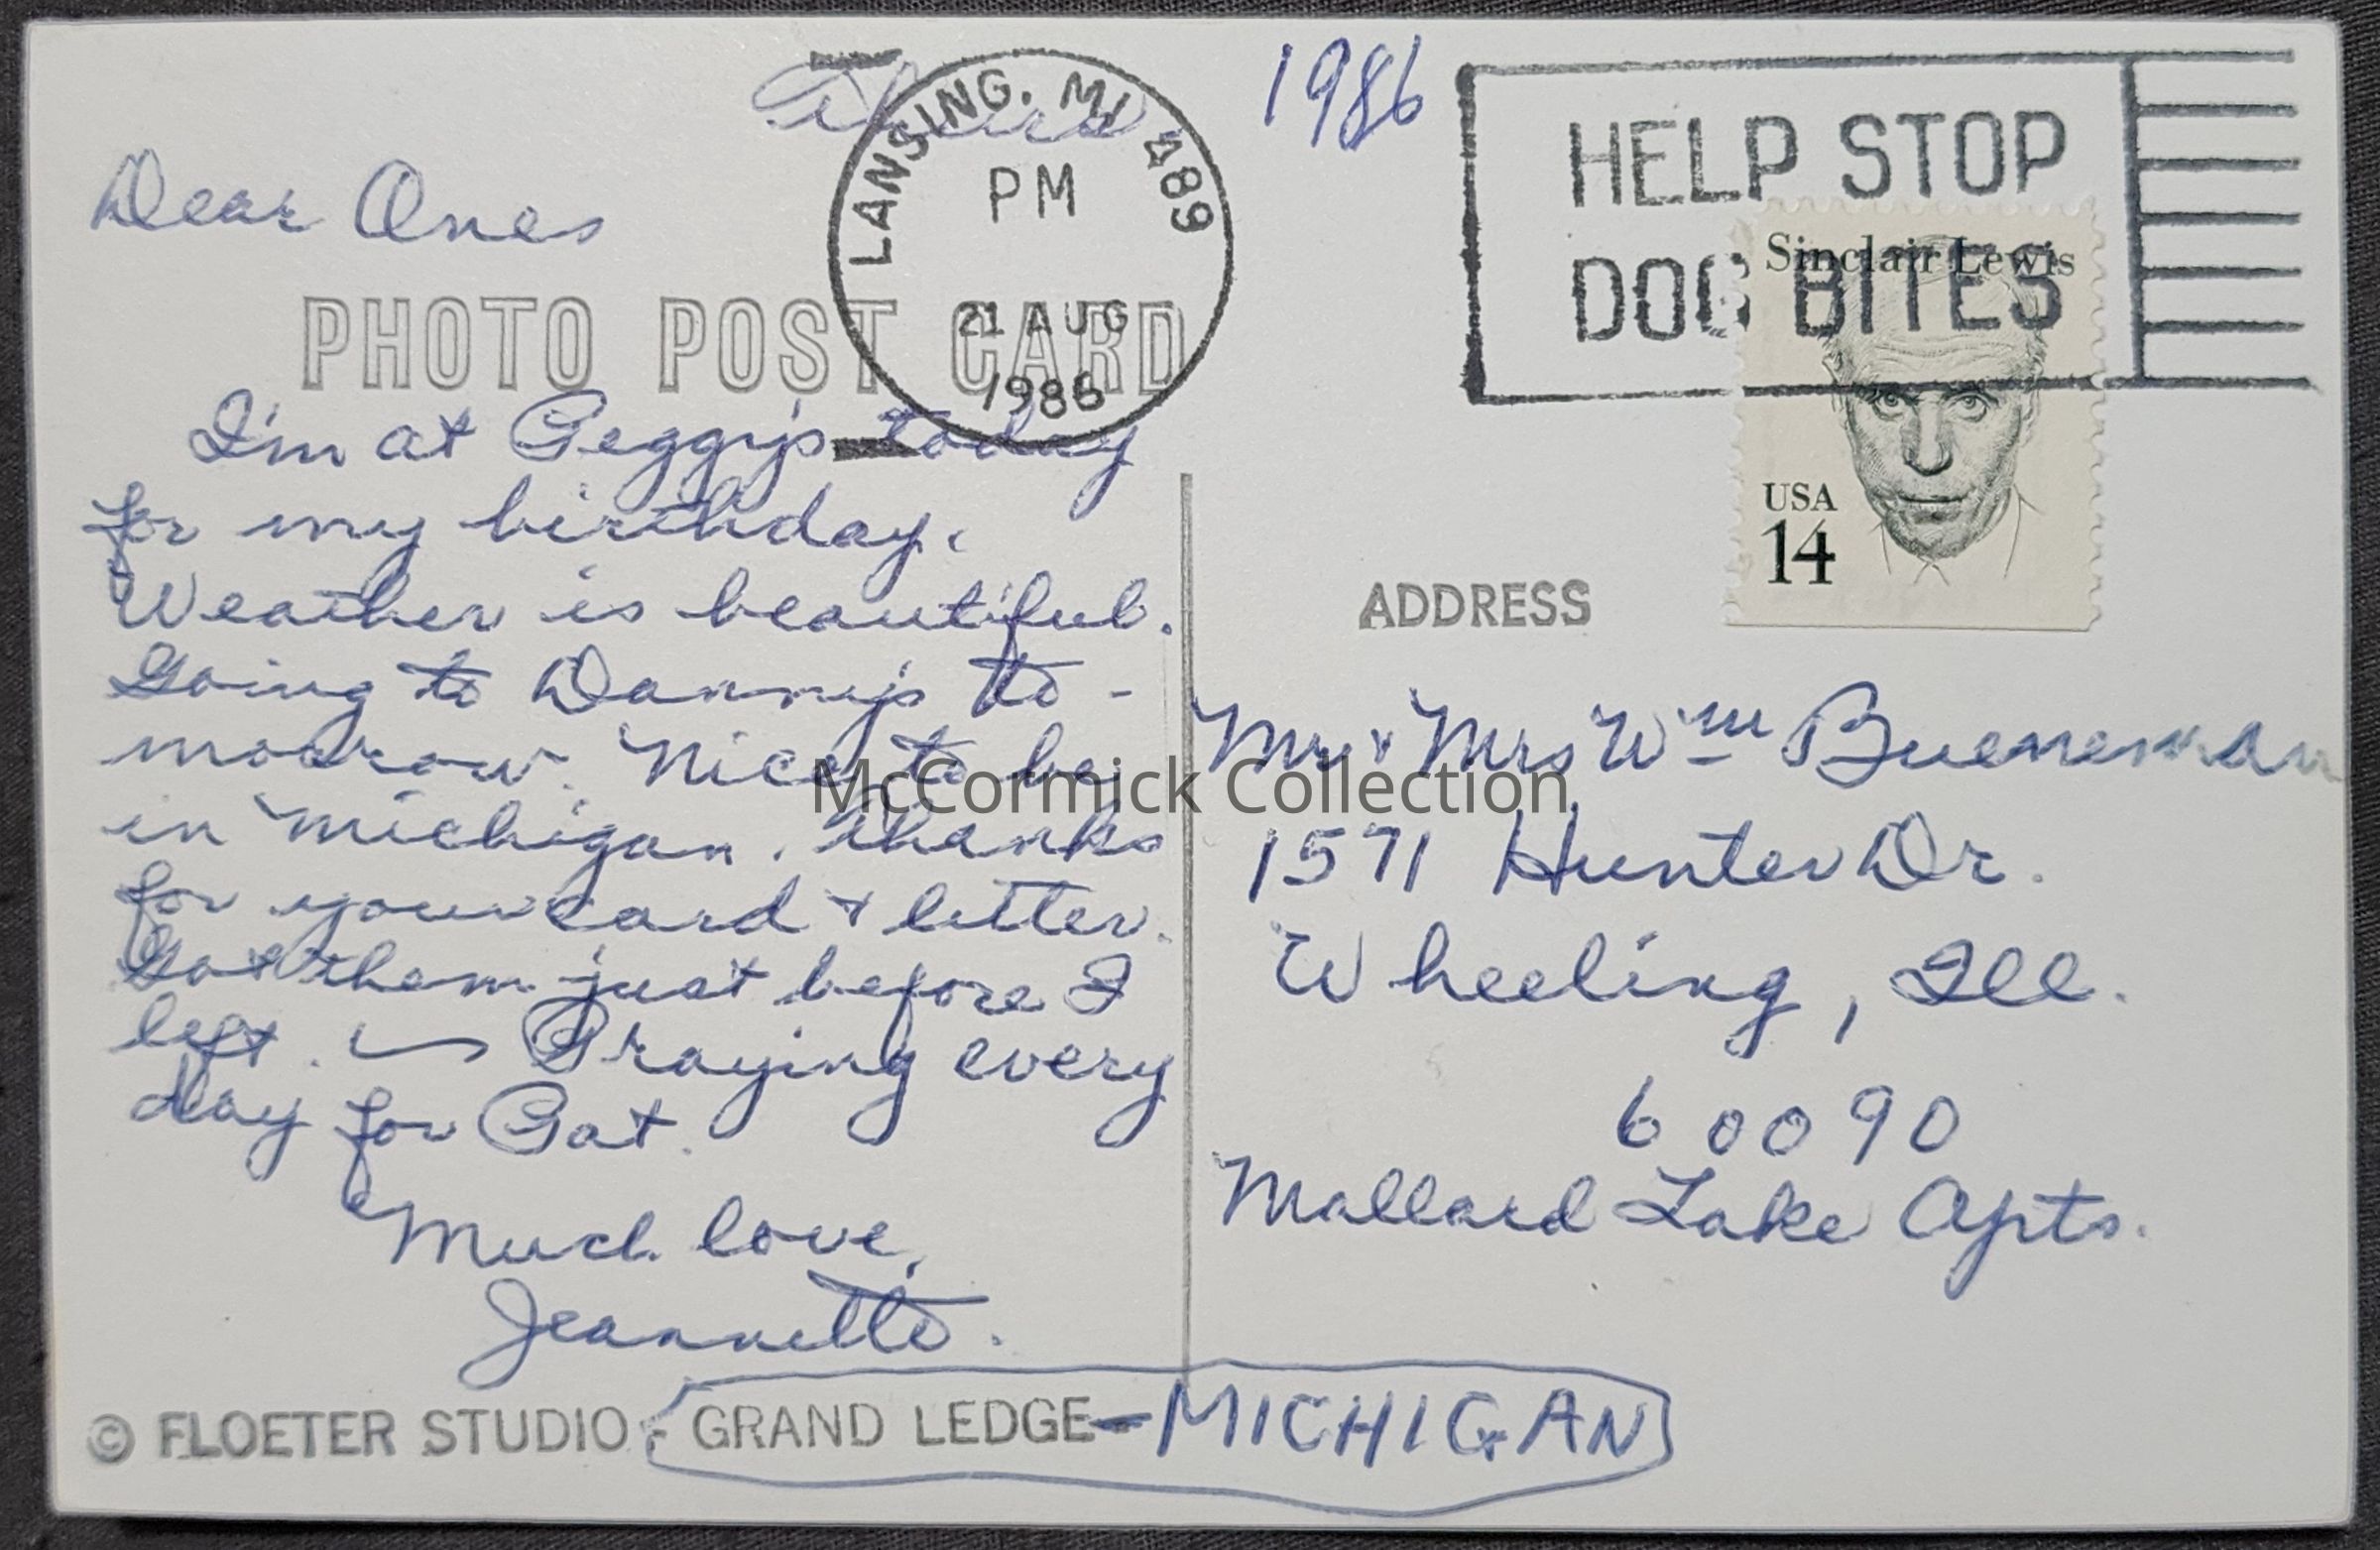 Thurs
1986
Dear Ones
PHOTO POST CARD
I'm at Peggy's today
for my birthday.
Weather is beautiful.
Going to Danny's to-
morrow. Nice to be
in Michigan. Thanks
for your card & letter.
Got them just before I
left. — Praying every
day for Pat.
Much love,
Jeannette.
© FLOETER STUDIO - GRAND LEDGE-MICHIGAN
LANSING, MI 489
PM
21 AUG
1986
HELP STOP
DOG BITES
Sinclair Lewis
USA
14
ADDRESS
Mr & Mrs Wm Bueneman
1571 Hunter Dr.
Wheeling, Ill.
60090
Mallard Lake Apts.
McCormick Collection